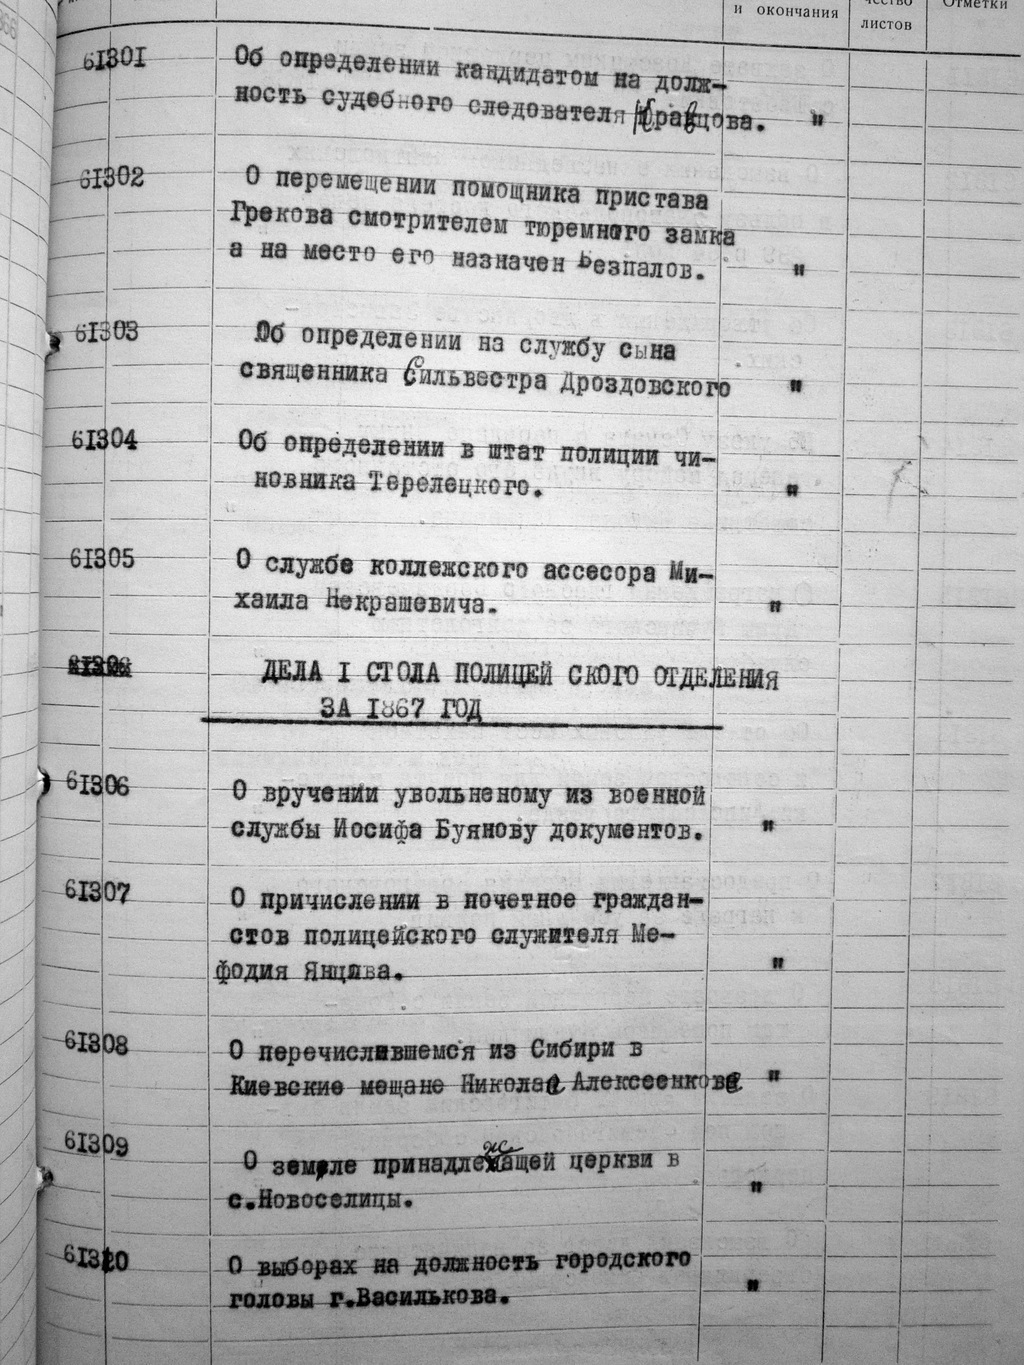 и окончания
чество
листов
Отметки
61301 Об определении кандидатом на долж-
ность судебного следователя Кравцова. "
61302 О перемещении помощника пристава
Грекова смотрителем тюремного замка
а на место его назначен Безпалов. "
61303 Об определении на службу сына
священника Сильвестра Дроздовского "
61304 Об определении в штат полиции чи-
новника Терелецкого. "
61305 О службе коллежского ассесора Ми-
хаила Некрашевича. "
ДЕЛА I СТОЛА ПОЛИЦЕЙ СКОГО ОТДЕЛЕНИЯ
ЗА 1867 ГОД
61306 О вручении увольненому из военной
службы Иосифа Буянову документов. "
61307 О причислении в почетное граждан-
стов полицейского служителя Ме-
фодия "
61308 О перечислившемся из Сибири в
Киевские мещане Николае Алексеенкове "
61309 О земле принадлежащей церкви в
с.Новоселицы. "
61310 О выборах на должность городского
головы г.Василькова. "